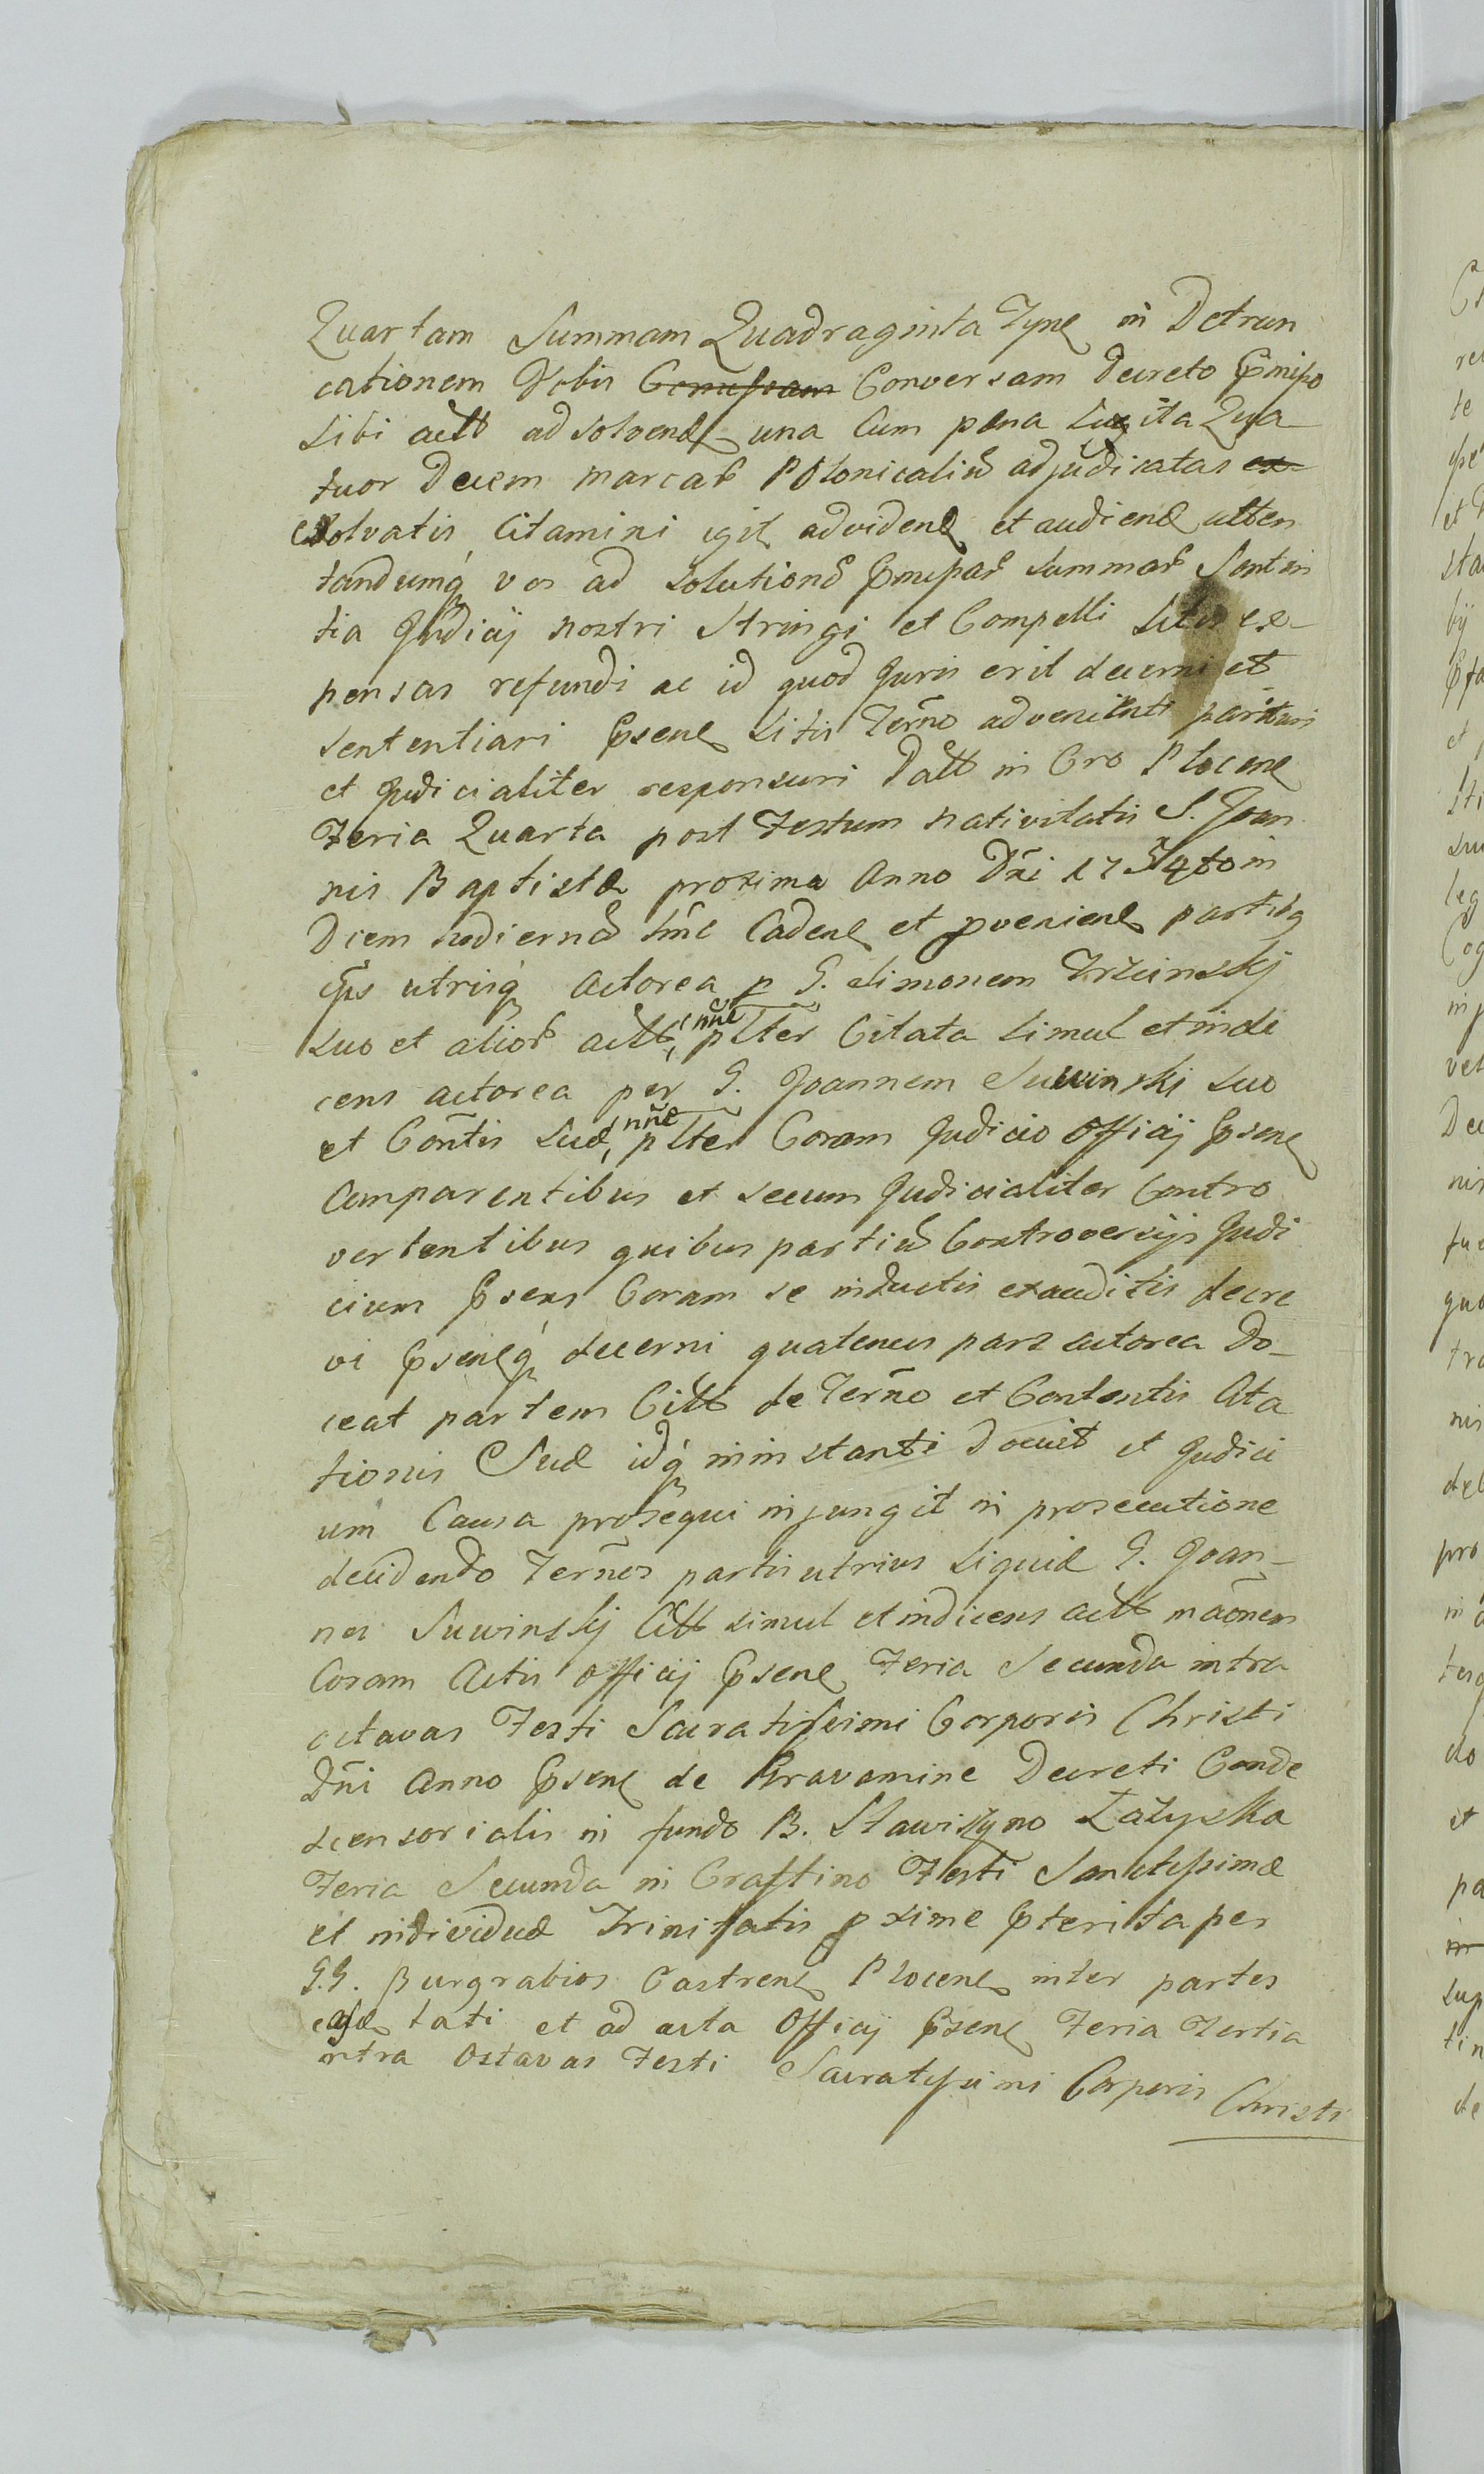 Quartam Summam Quadraginta Tyne in Detrun
cationem Vobis Conversam Decreto
sibi actt ad solvend una Cum pœna Luita Qua
tuor Decem Marcar Polonicaliū adjudicatas ex
exolvatis Citamini igit ad videnđ et audienđ atten
tandumq́ vos ad solutionē summar Senten
tia Judicij nostri Stringi et Compelli Litis ex-
pensas refundi ac id quod Juris erit decerni et
sententiari Psene Litis Termo advenienti parituri
et Judicialiter responsuri Datt in Cro Plocene
Feria Quarta post Festum Nativitatis S. Joan
nis Baptistæ proxima Anno Dñi 1734to in
Diem hodiernā hñc Cadenē et pvenienē partibq
Psus utrisq́ Actorea p G. Simonem Trzcinskj
suo et alior actt nñe plter Citata simul et indi
cens actorea per G. Joannem Suwinskj suo
et Contis suæ nñe plter Coram Judicio Officij Psene
Comparentibus et secum Judicialiter Contro
vertentibus quibus partiū Controversijs Judi
cium Psens Coram se inductis exauditis decre
vi Pseneq́ decerni quatenus pars actorea Do-
ceat partem Citt de Termo et Contentis Cita
tionis Suæ idq́ in instanti Docuit et Judici
um Causa prosequi injungit in prosecutione
decidendo Termos partis utrius siquid G. Joan-
nes Suwinskj Citt simul et indicens actt māonem
Coram Actis Officij Psene Feria Secunda intra
octavas Festi Sacratissimi Corporis Christi
Dñi Anno Psene de Gravamine Decreti Conde
scensorialis in fundo B. Stawiszyno Łazyska
Feria Secunda in Crastino Festi Sanctissimæ
et individuæ Trinitatis pxime Pterita per
G.G. Burgrabios Castrens Plocens inter partes
easd lati et ad acta Officij Psene Feria Tertia
intra Octavas Festi Sacratissimi Corporis Christi